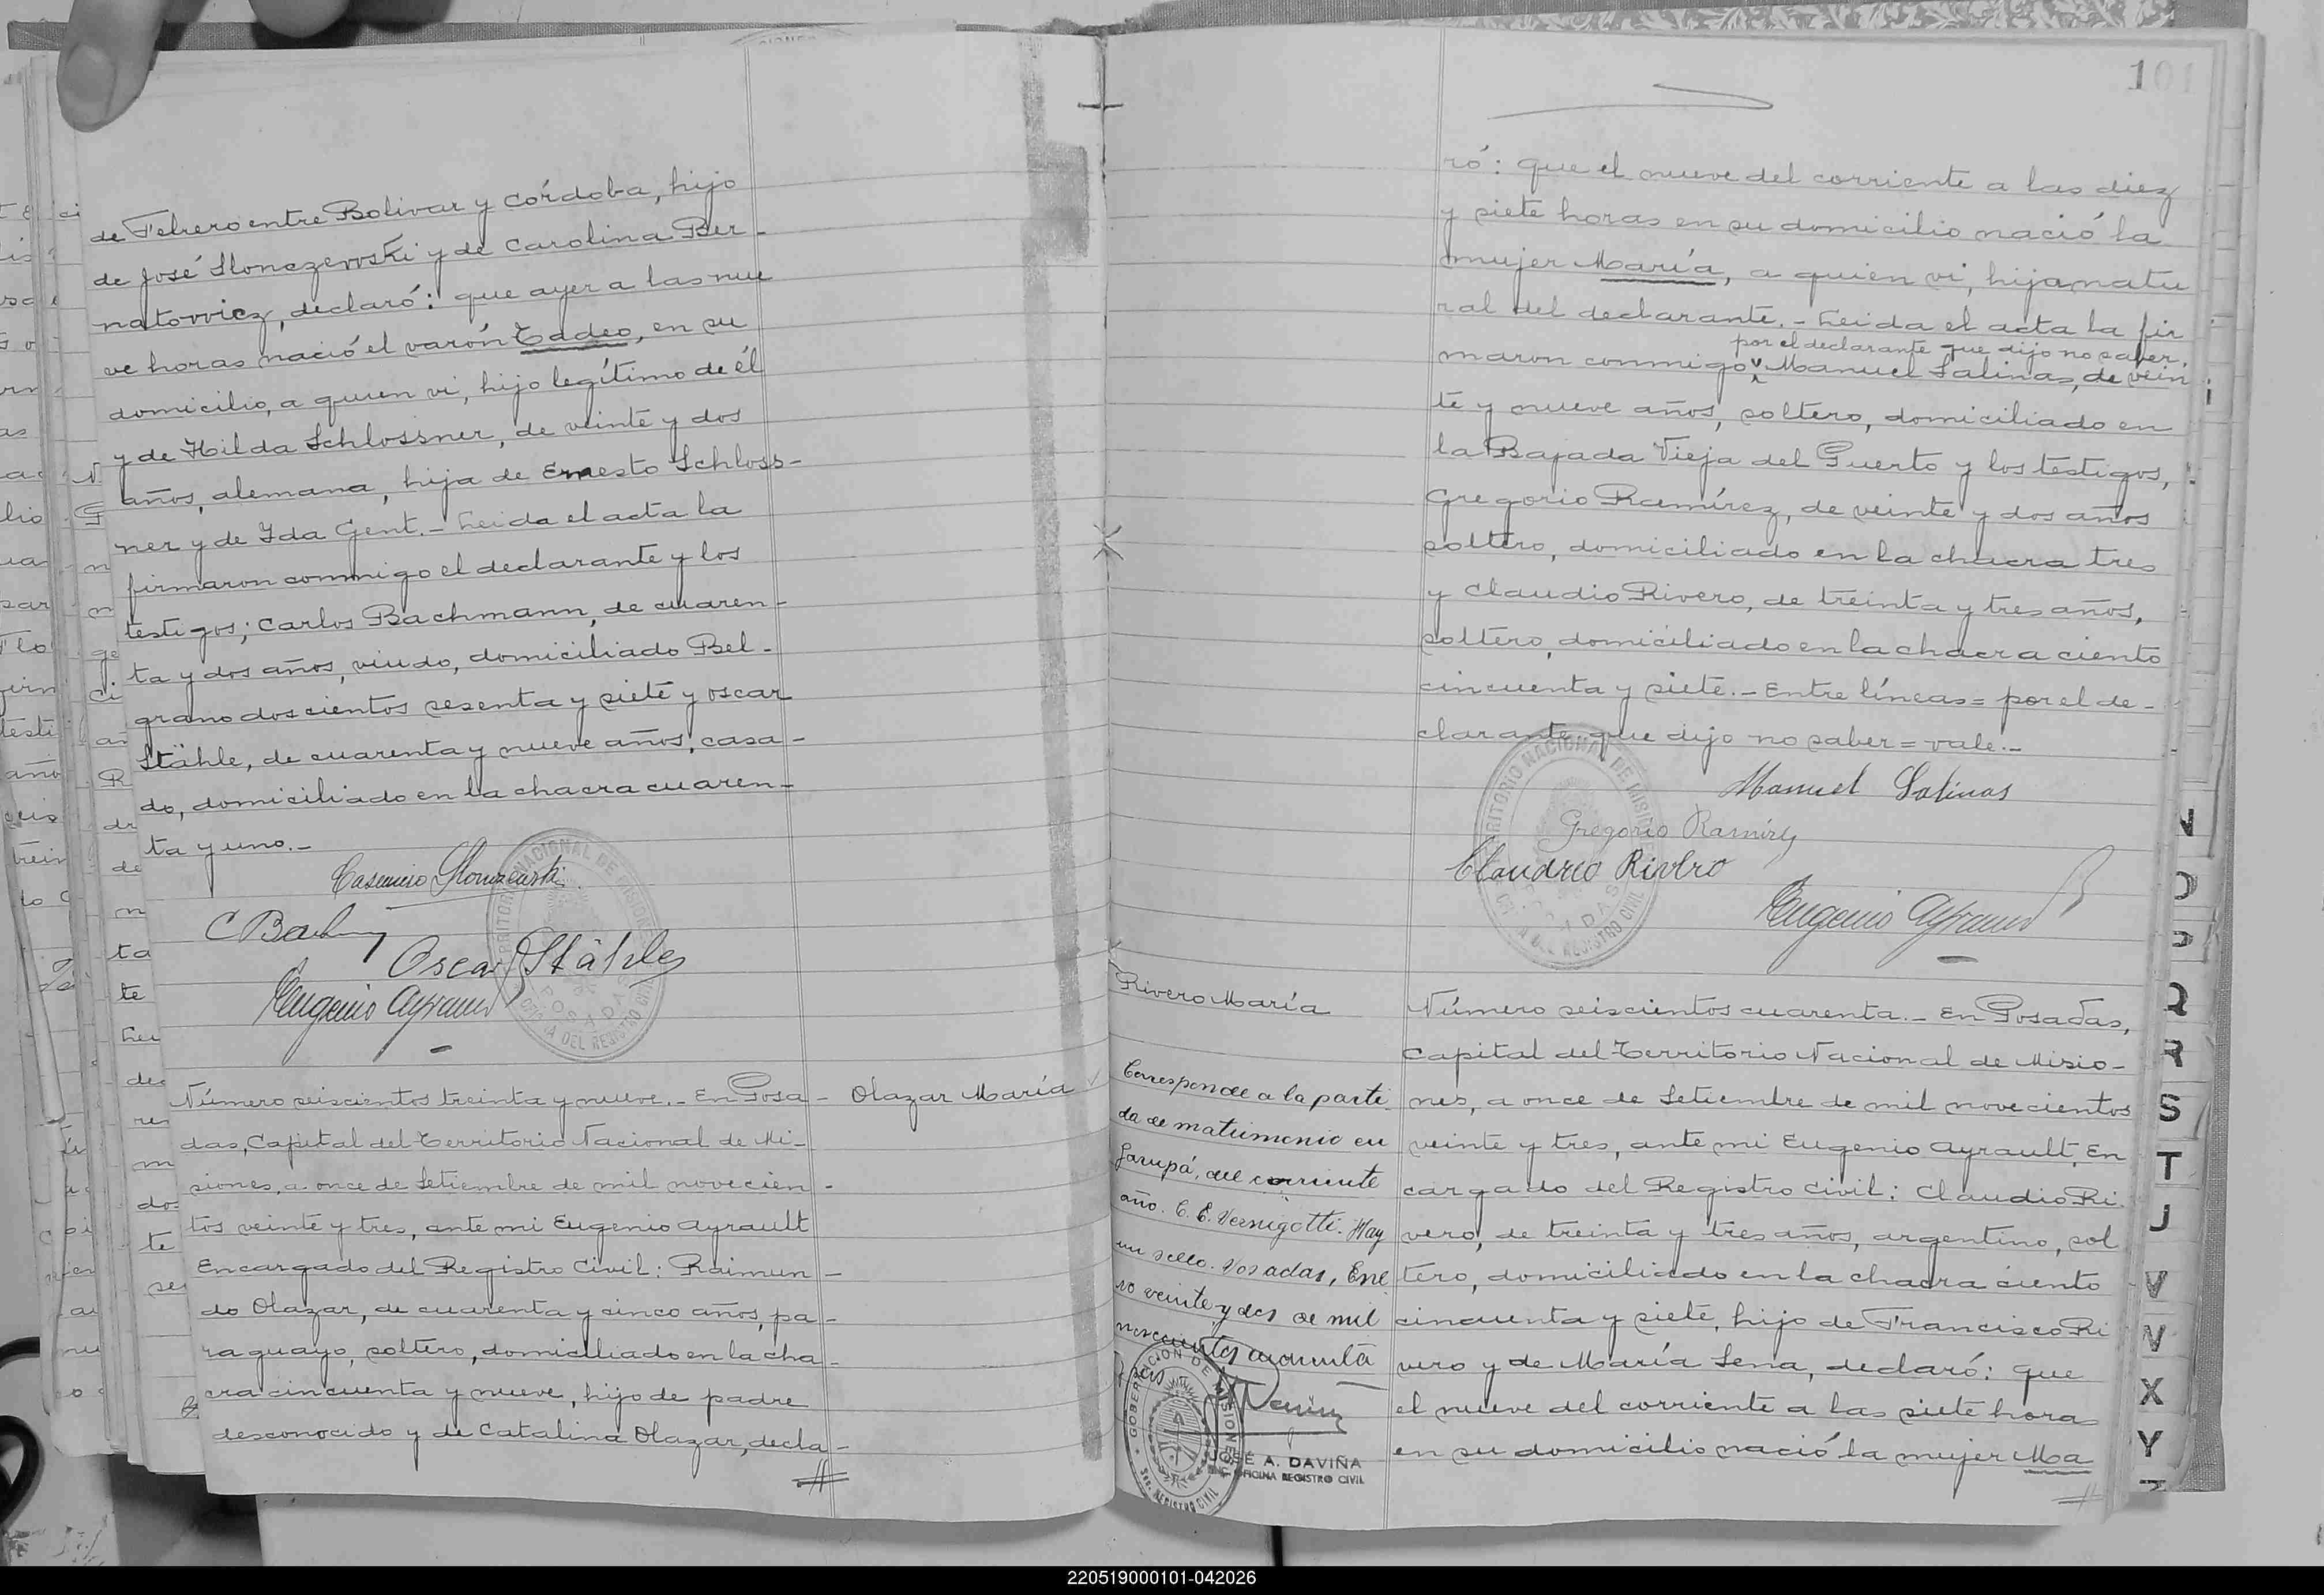 de Febrero entre Bolivar y Córdoba, hijo
de José Slonczewski y de Carolina Ber-
natowicz, declaró: que ayer a las nue
ve horas nació el varón Tadeo, en su
domicilio, a quien vi, hijo legítimo de él
y de Hilda Schlossner, de veinte y dos
años, alemana, hija de Ernesto Schloss-
ner y de Ida Gent.- Leida el acta la
firmaron conmigo el declarante y los
testigos; Carlos Bachmann, de cuaren-
ta y dos años, viudo, domiciliado Bel-
grano doscientos sesenta y siete y Oscar
Stähle, de cuarenta y nueve años, casa-
do, domiciliado en la chacra cuaren-
ta y uno.-
Casimiro Slonczewski
C Bach
Oscar Stähle
Eugenio Ayrault
TERRITORIO NACIONAL DE MISIONES
POSADAS
OFICINA DEL REGISTRO CIVIL
Olazar María
Número seiscientos treinta y nueve.- En Posa-
das, Capital del Territorio Nacional de Mi-
siones, a once de Setiembre de mil novecien-
tos veinte y tres, ante mi Eugenio Ayrault
Encargado del Registro Civil: Raimun-
do Olazar, de cuarenta y cinco años, pa-
raguayo, soltero, domiciliado en la cha-
cra cincuenta y nueve, hijo de padre
desconocido y de Catalina Olazar, decla-
101
ró: que el nueve del corriente a las diez
y siete horas en su domicilio nació la
mujer María, a quien vi, hija natu
ral del declarante.- Leida el acta la fir
por el declarante que dijo no saber,
maron conmigo Manuel Salinas, de vein
te y nueve años, soltero, domiciliado en
la Bajada Vieja del Puerto y los testigos,
Gregorio Ramírez, de veinte y dos años
soltero, domiciliado en la chacra tres
y Claudio Rivero, de treinta y tres años,
soltero, domiciliado en la chacra ciento
cincuenta y siete.- Entre líneas = por el de-
clarante que dijo no saber = vale.-
Manuel Salinas
Gregorio Ramírez
Claudio Rivero
Eugenio Ayrault
TERRITORIO NACIONAL DE MISIONES
POSADAS
OFICINA DEL REGISTRO CIVIL
Rivero María
Corresponde a la parti
da de matrimonio en
Garupá, del corriente
año. C. E. Vernigotti. Hay
un sello. Posadas, Ene
ro veinte y dos de mil
novecientos cuarenta
y seis
GOBERNACION DE MISIONES
REGISTRO CIVIL
JOSÉ A. DAVIÑA
OFICINA REGISTRO CIVIL
Número seiscientos cuarenta.- En Posadas,
Capital del Territorio Nacional de Misio-
nes, a once de Setiembre de mil novecientos
veinte y tres, ante mi Eugenio Ayrault, En
cargado del Registro Civil: Claudio Ri
vero, de treinta y tres años, argentino, sol
tero, domiciliado en la chacra ciento
cincuenta y siete, hijo de Francisco Ri
vero y de María Sena, declaró: que
el nueve del corriente a las siete horas
en su domicilio nació la mujer Ma
N
O
P
Q
R
S
T
J
V
V
X
Y
Z
220519000101-042026